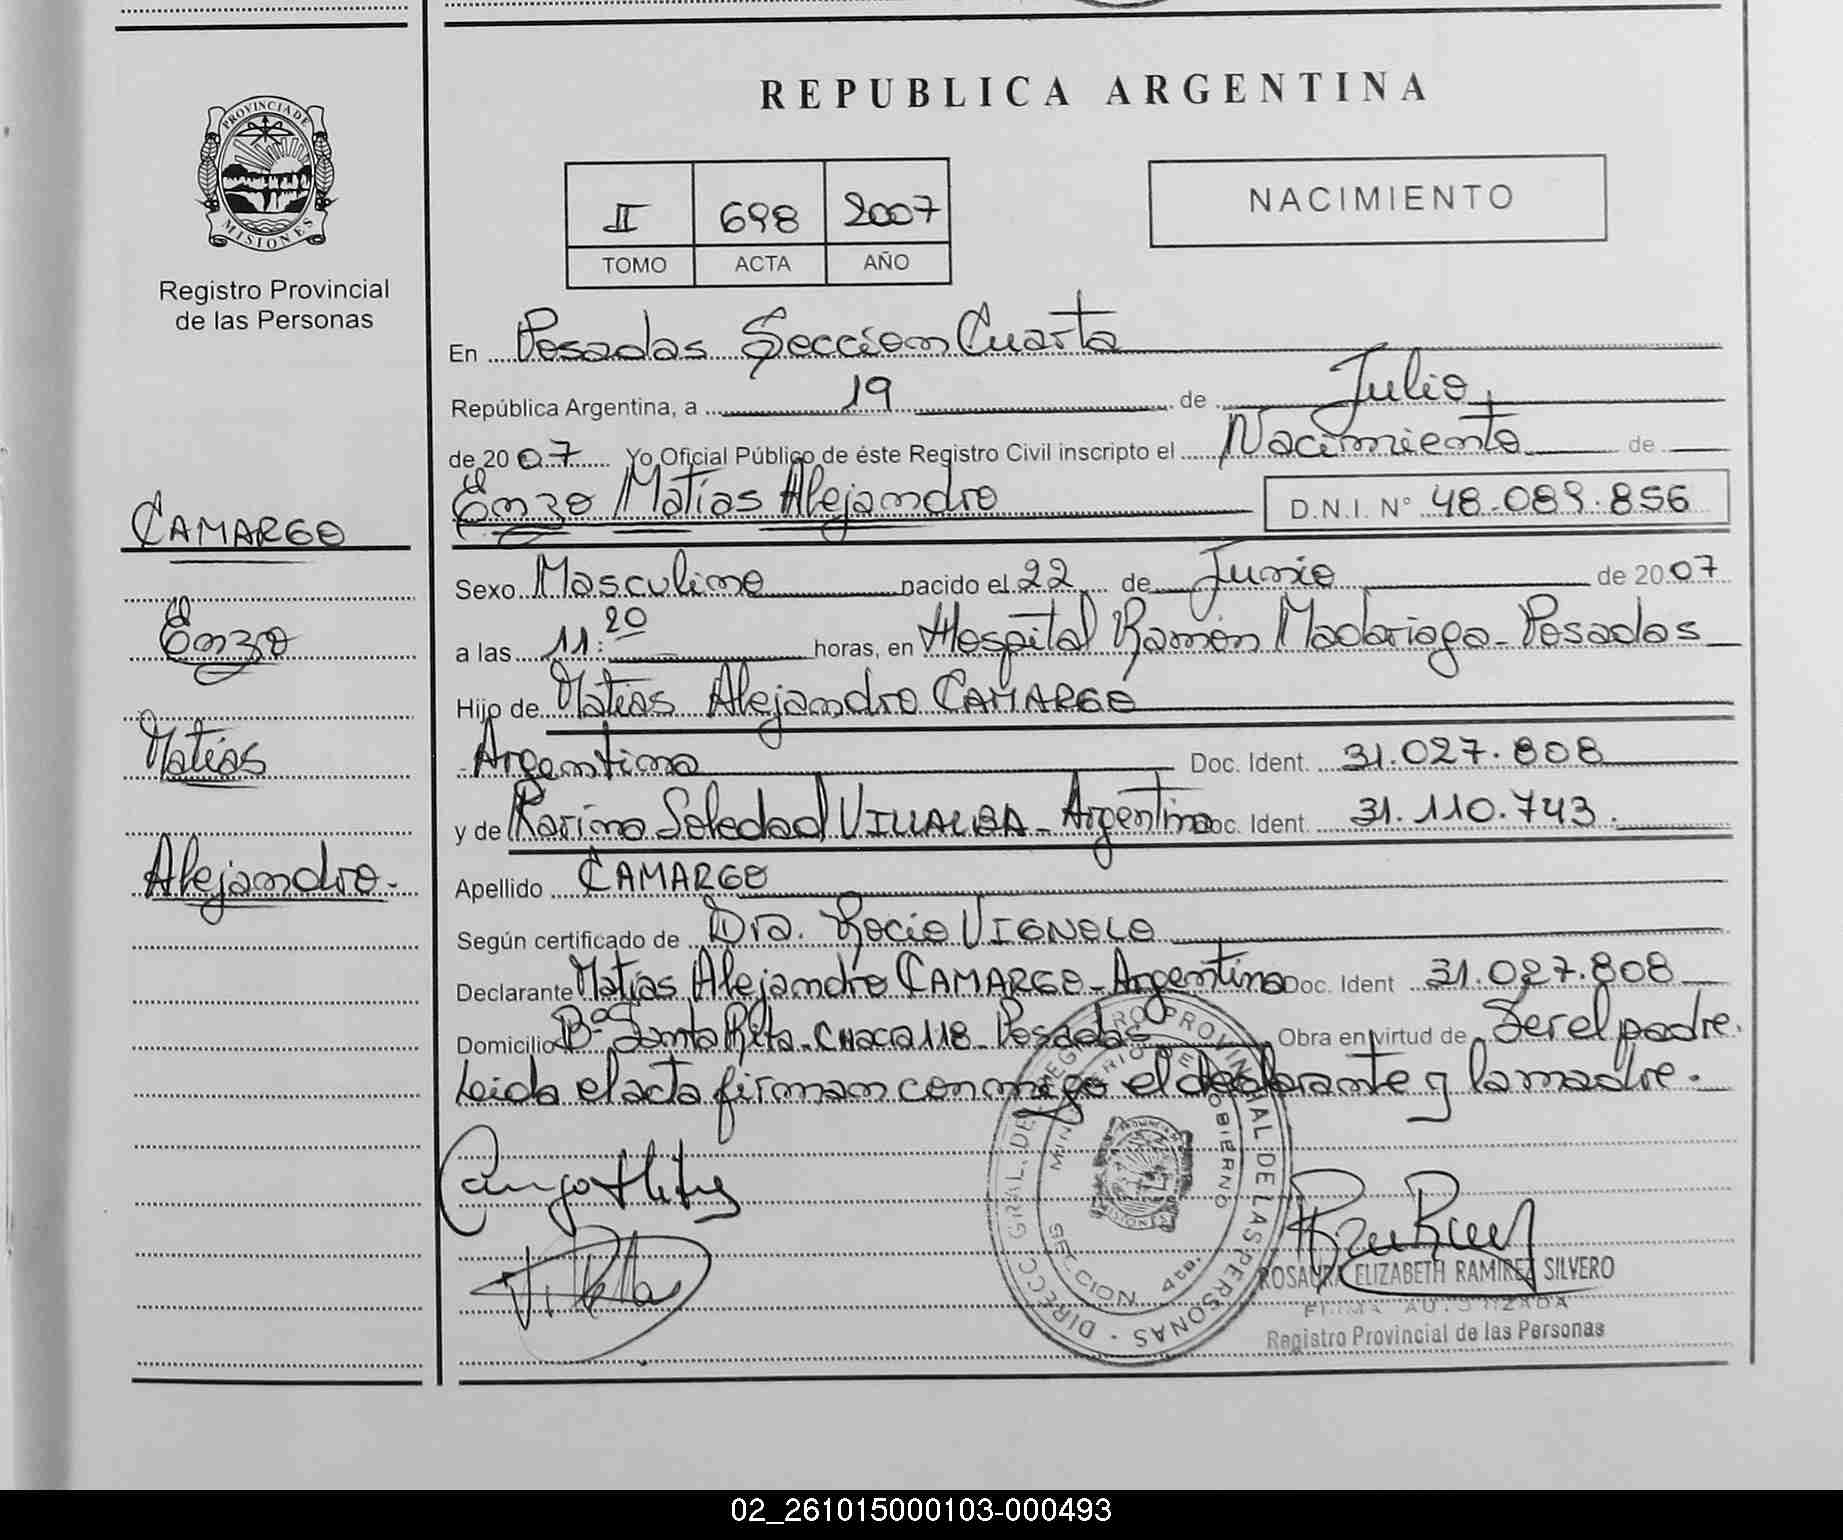 REPUBLICA ARGENTINA
PROVINCIA DE
MISIONES
Registro Provincial
de las Personas
II 698 2007
TOMO ACTA AÑO
NACIMIENTO
En Posadas Sección Cuarta
República Argentina, a 19 de Julio
de 2007 Yo Oficial Público de éste Registro Civil inscripto el Nacimiento de
Enzo Matías Alejandro D.N.I. Nº 48.089.856
CAMARGO
Enzo
Matías
Alejandro.
Sexo Masculino nacido el 22 de Junio de 2007
a las 11:20 horas, en Hospital Ramón Madariaga - Posadas
Hijo de Matías Alejandro CAMARGO
Argentino Doc. Ident. 31.027.808
y de Karina Soledad VILLALBA - Argentina Doc. Ident. 31.110.743.
Apellido CAMARGO
Según certificado de Dra. Rocío VIGNOLO
Declarante Matías Alejandro CAMARGO - Argentino Doc. Ident 31.027.808
Domicilio Bº Santa Rita - CHACRA 118 - Posadas Obra en virtud de Ser el padre.
Leída el acta firman conmigo el declarante y la madre.
DIRECC. GRAL. DEL REGISTRO PROVINCIAL DE LAS PERSONAS
MINISTERIO DE GOBIERNO
SECCION 4ta.
ROSAURA ELIZABETH RAMIREZ SILVERO
FIRMA AUTORIZADA
Registro Provincial de las Personas
02_261015000103-000493